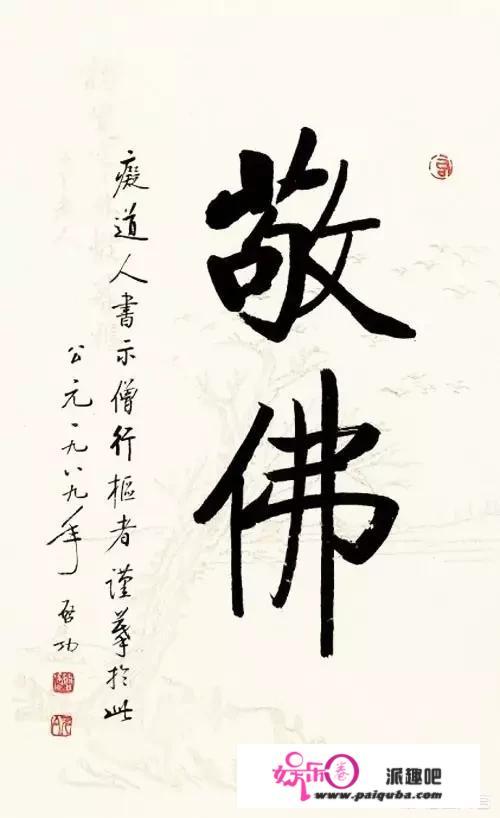 敬佛
癡道人書示僧行樞者謹摹於此
公元一九八九年 啟功
娱乐卷
派趣吧
www.paiquba.com